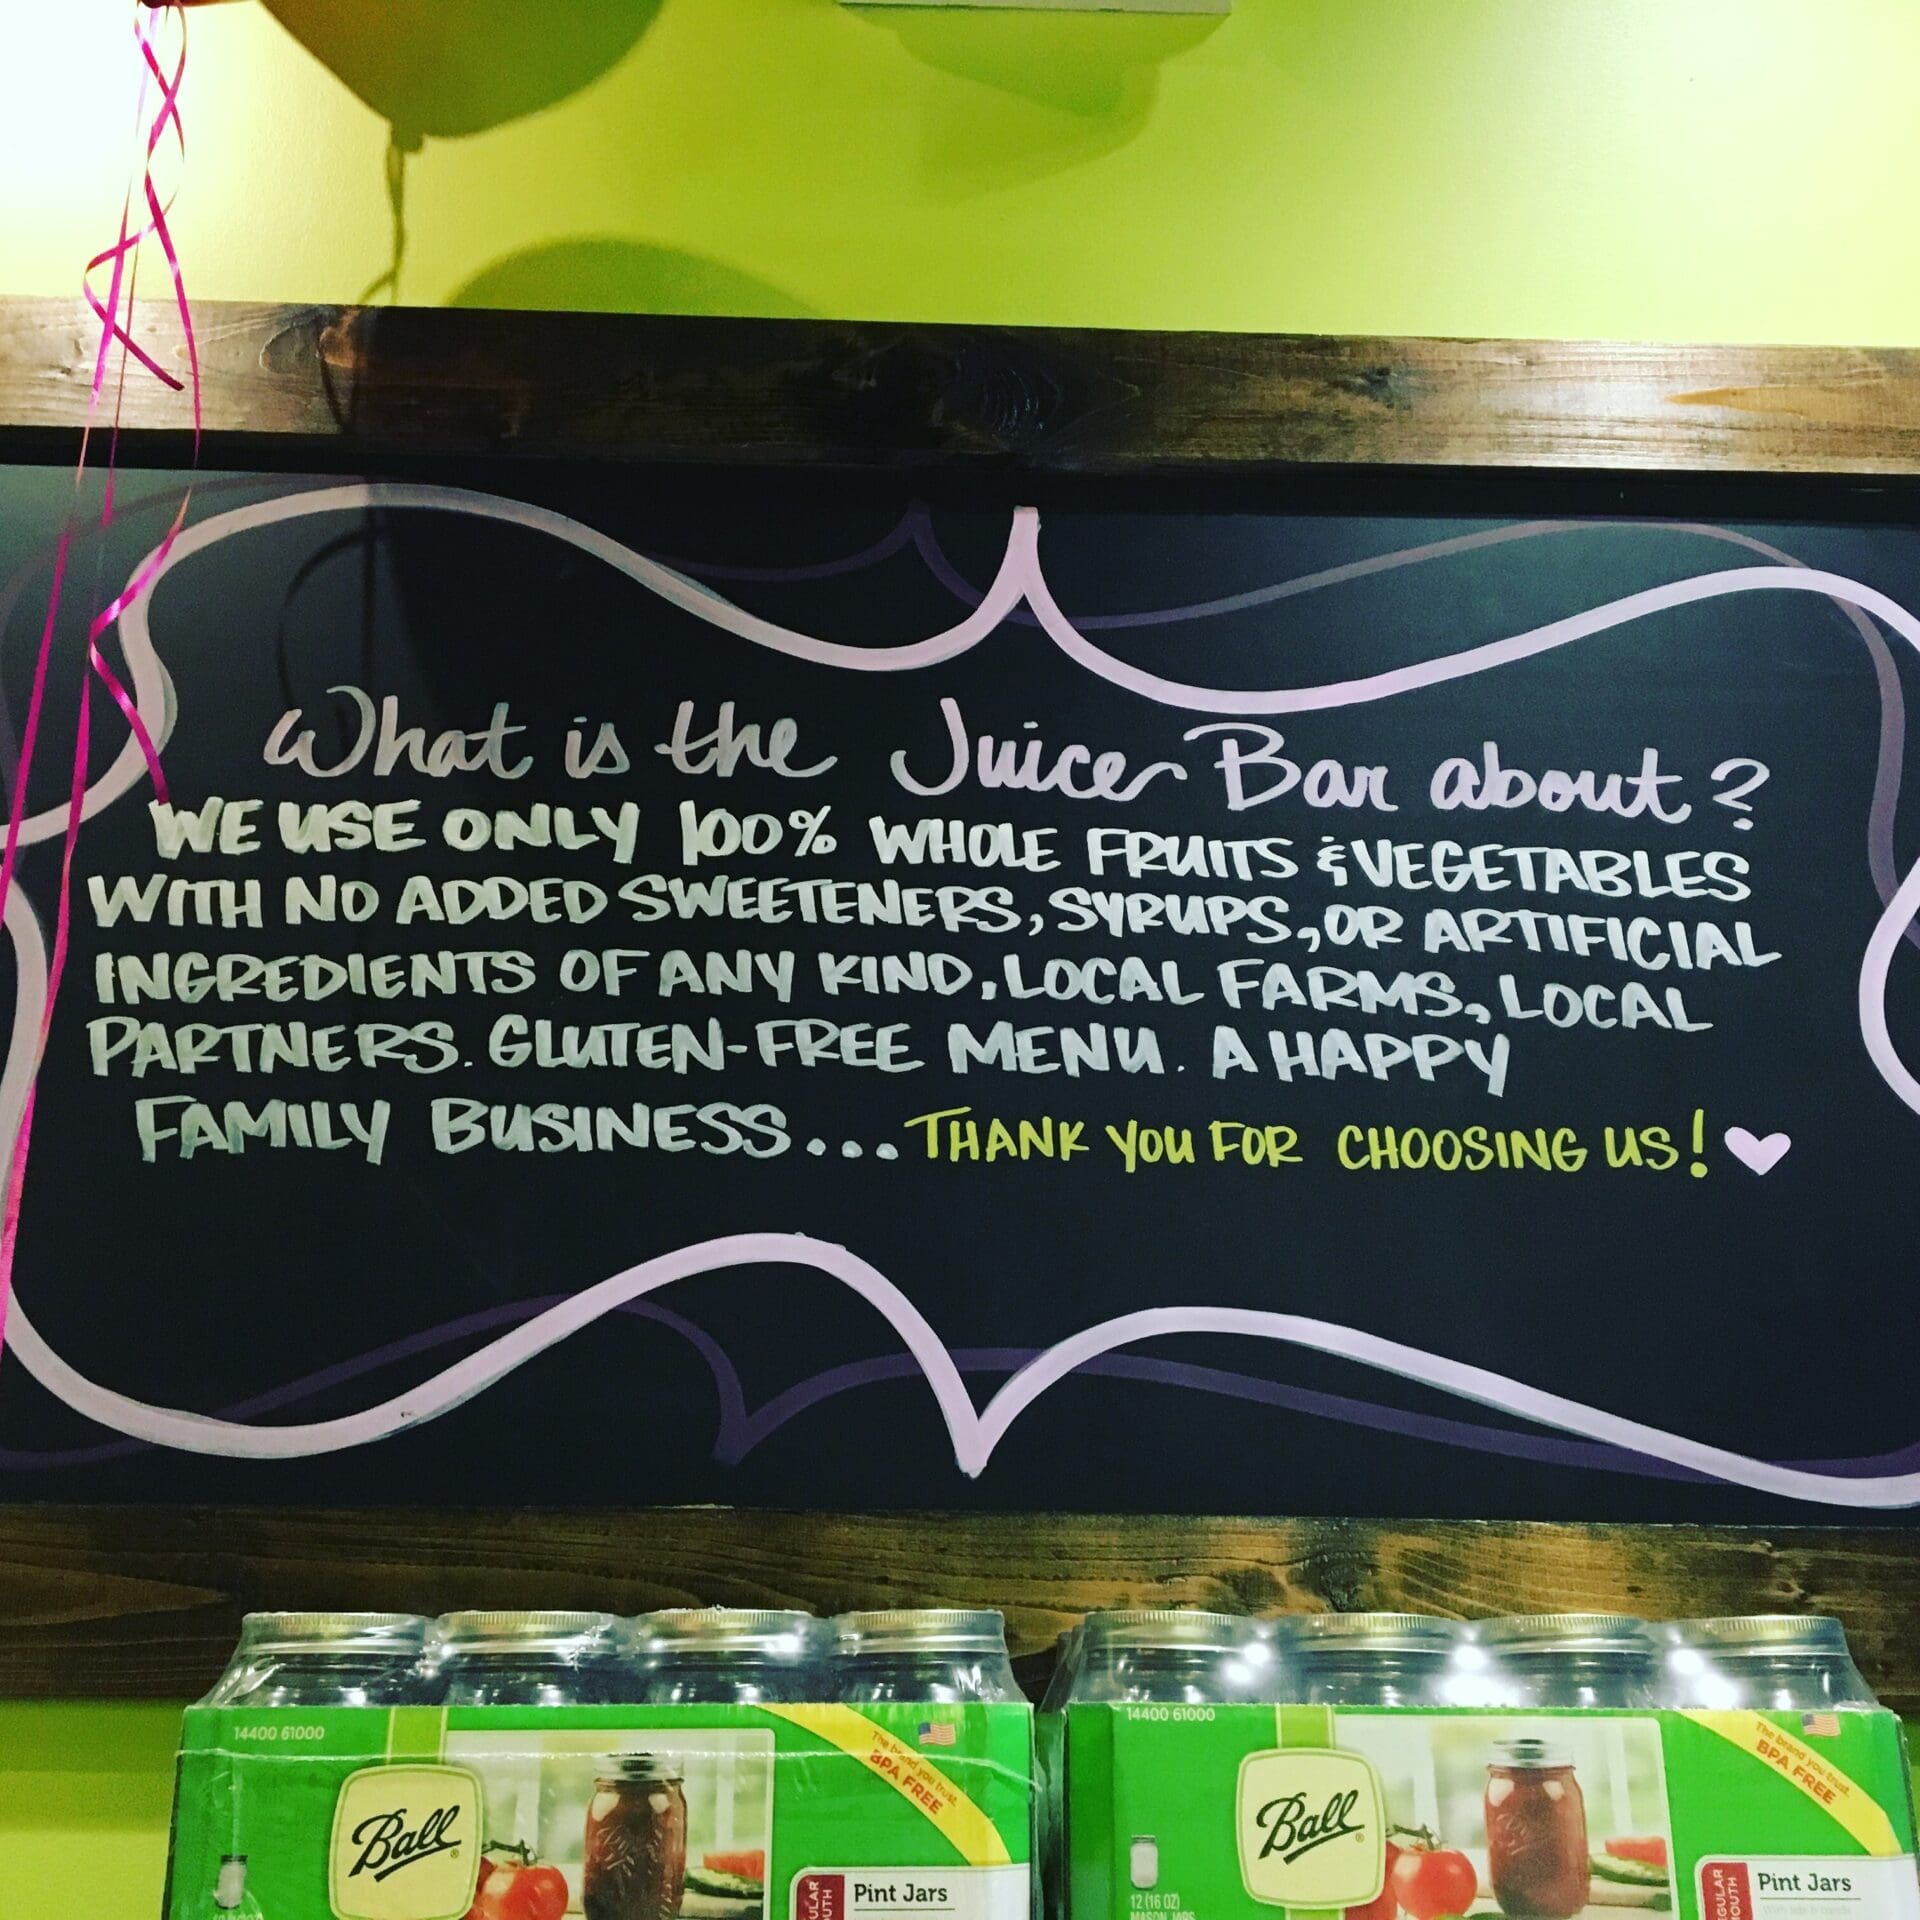 What is the Juice Bar about?
WE USE ONLY 100% WHOLE FRUITS & VEGETABLES
WITH NO ADDED SWEETENERS, SYRUPS, OR ARTIFICIAL
INGREDIENTS OF ANY KIND, LOCAL FARMS, LOCAL
PARTNERS. GLUTEN-FREE MENU. A HAPPY
FAMILY BUSINESS... THANK YOU FOR CHOOSING US!
14400 61000
The brand you trust.
BPA FREE
Ball
Pint Jars
14400 61000
The brand you trust.
BPA FREE
Ball
12 (16 OZ)
MASON JARS
Pint Jars